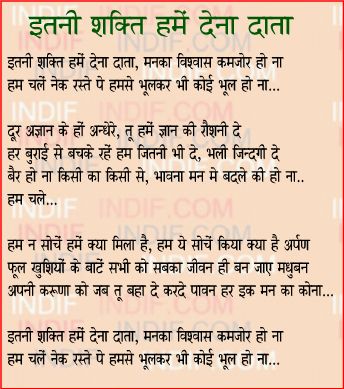 इतनी शक्ति हमें देना दाता
इतनी शक्ति हमें देना दाता, मनका विश्वास कमजोर हो ना
हम चलें नेक रस्ते पे हमसे भूलकर भी कोई भूल हो ना...
दूर अज्ञान के हों अन्धेरे, तू हमें ज्ञान की रौशनी दे
हर बुराई से बचके रहें हम जितनी भी दे, भली जिन्दगी दे
बैर हो ना किसी का किसी से, भावना मन मे बदले की हो ना..
हम चले...
हम न सोचें हमें क्या मिला है, हम ये सोचें किया क्या है अर्पण
फूल खुशियों के बाटें सभी को सबका जीवन ही बन जाए मधुबन
अपनी करूणा को जब तू बहा दे करदे पावन हर इक मन का कोना...
इतनी शक्ति हमें देना दाता, मनका विश्वास कमजोर हो ना
हम चलें नेक रस्ते पे हमसे भूलकर भी कोई भूल हो ना...
INDIF.COM